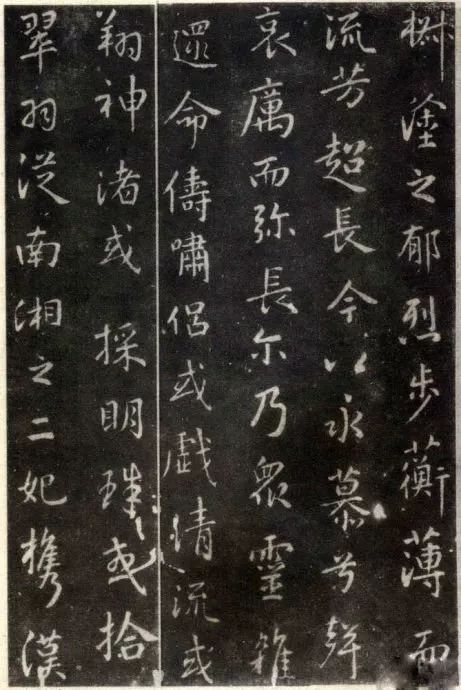 椒塗之郁烈步蘅薄而
流芳超長今以永慕兮聲
哀厲而弥長尒乃眾靈雜
遝命儔嘯侶或戲清流或
翔神渚或採明珠或拾
翠羽從南湘之二妃携漢